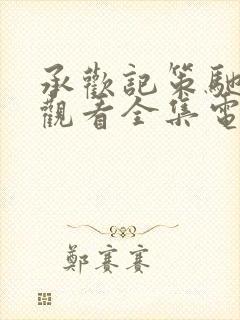 承歡記策馳
觀看全集電
鄭賽賽